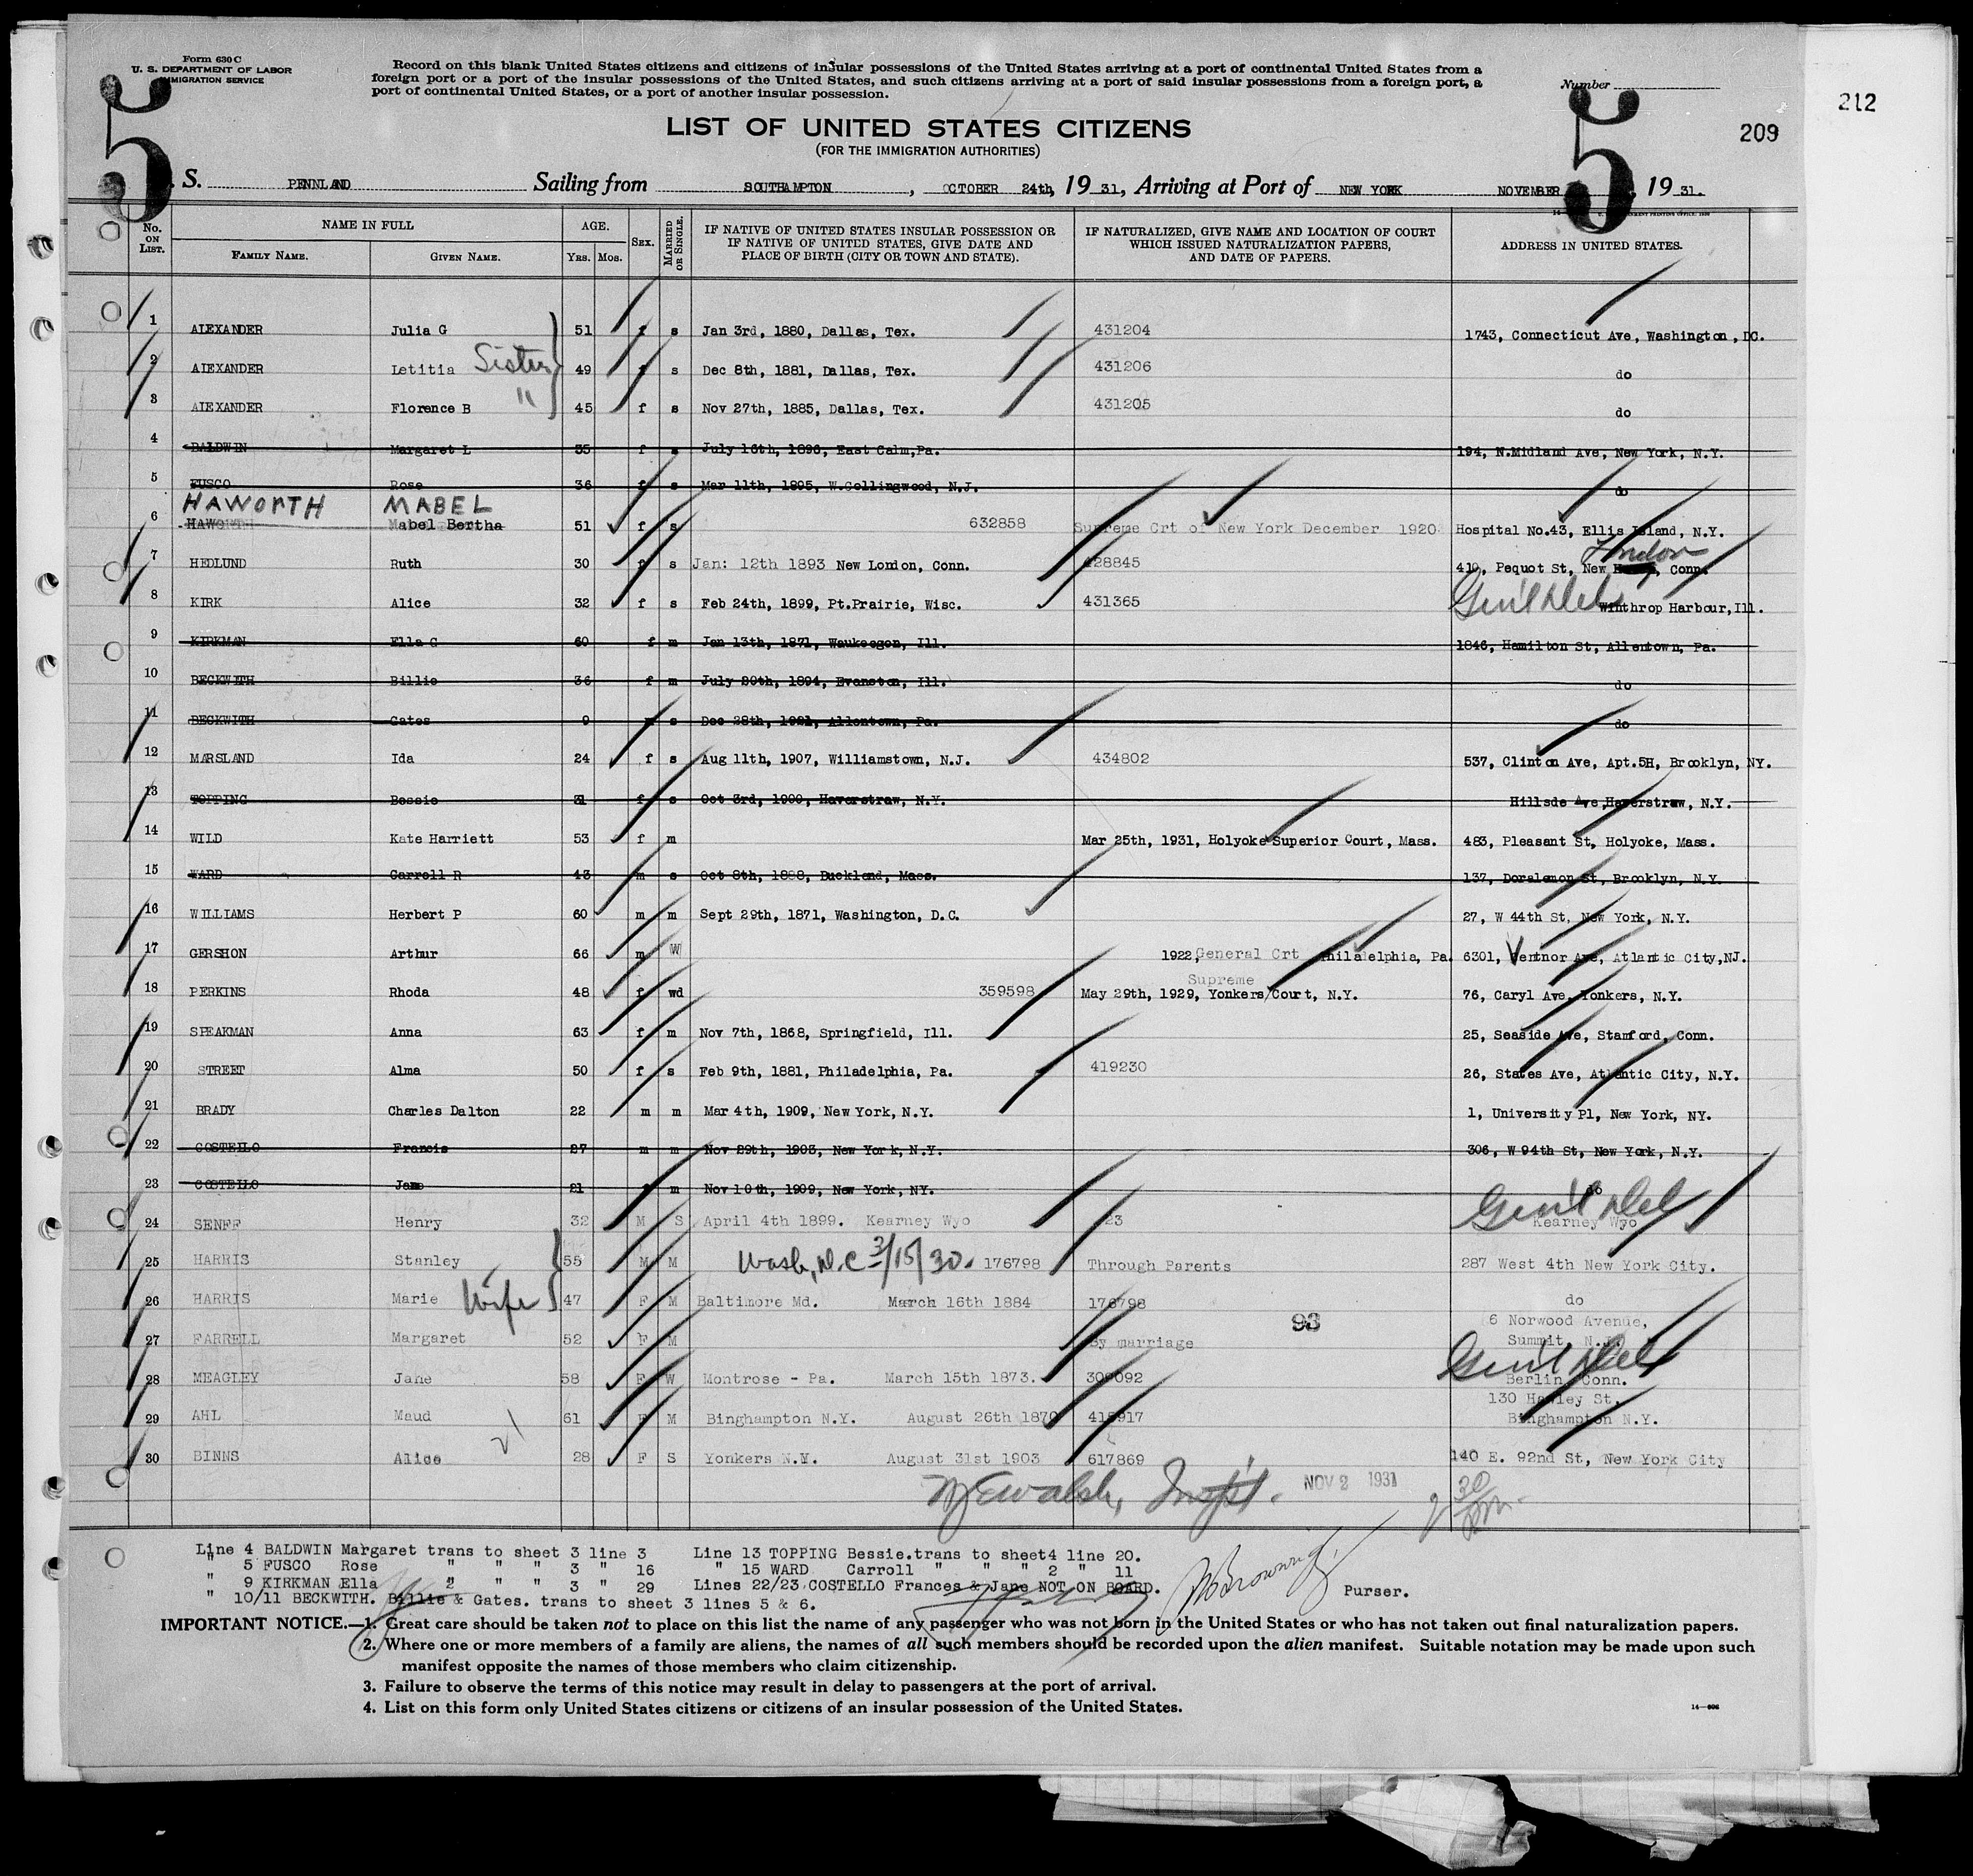 Form 630 C
U. S. DEPARTMENT OF LABOR
IMMIGRATION SERVICE
Record on this blank United States citizens and citizens of insular possessions of the United States arriving at a port of continental United States from a
foreign port or a port of the insular possessions of the United States, and such citizens arriving at a port of said insular possessions from a foreign port, a
port of continental United States, or a port of another insular possession.
Number
5
5
209
212
LIST OF UNITED STATES CITIZENS
(FOR THE IMMIGRATION AUTHORITIES)
S. PENNLAND Sailing from SOUTHAMPTON, OCTOBER 24th, 19 31, Arriving at Port of NEW YORK NOVEMBER, 19 31.
No. ON LIST. NAME IN FULL FAMILY NAME. GIVEN NAME. AGE. YRS. MOS. SEX. MARRIED OR SINGLE. IF NATIVE OF UNITED STATES INSULAR POSSESSION OR IF NATIVE OF UNITED STATES, GIVE DATE AND PLACE OF BIRTH (CITY OR TOWN AND STATE). IF NATURALIZED, GIVE NAME AND LOCATION OF COURT WHICH ISSUED NATURALIZATION PAPERS, AND DATE OF PAPERS. ADDRESS IN UNITED STATES.
1 ALEXANDER Julia G 51 f s Jan 3rd, 1880, Dallas, Tex. 431204 1743, Connecticut Ave, Washington, DC.
2 ALEXANDER Letitia Sister 49 f s Dec 8th, 1881, Dallas, Tex. 431206 do
3 ALEXANDER Florence B " 45 f s Nov 27th, 1885, Dallas, Tex. 431205 do
4 BALDWIN Margaret L 35 f s July 16th, 1896, East Calm, Pa. 194, N.Midland Ave, New York, N.Y.
5 FUSCO Rose 36 f s Mar 11th, 1895, W.Collingwood, N.J. do
HAWORTH MABEL
6 HAWORTH Mabel Bertha 51 f s 632858 Supreme Crt of New York December 1920 Hospital No.43, Ellis Island, N.Y.
London
7 HEDLUND Ruth 30 f s Jan: 12th 1893 New London, Conn. 428845 410, Pequot St, New Conn.
8 KIRK Alice 32 f s Feb 24th, 1899, Pt.Prairie, Wisc. 431365 Gen'l Del Winthrop Harbour, Ill.
9 KIRKMAN Ella G 60 f m Jan 13th, 1871, Waukeegon, Ill. 1846, Hamilton St, Allentown, Pa.
10 BECKWITH Billie 36 f m July 20th, 1894, Evanston, Ill. do
11 BECKWITH Gates 9 m s Dec 28th, 1921, Allentown, Pa. do
12 MARSLAND Ida 24 f s Aug 11th, 1907, Williamstown, N.J. 434802 537, Clinton Ave, Apt.5H, Brooklyn, NY.
13 TOPPING Bessie 31 f s Oct 3rd, 1900, Haverstraw, N.Y. Hillsde Ave, Haverstraw, N.Y.
14 WILD Kate Harriett 53 f m Mar 25th, 1931, Holyoke Superior Court, Mass. 483, Pleasant St, Holyoke, Mass.
15 WARD Carroll R 43 m s Oct 8th, 1888, Buckland, Mass. 137, Doralemon St, Brooklyn, N.Y.
16 WILLIAMS Herbert P 60 m m Sept 29th, 1871, Washington, D.C. 27, W 44th St, New York, N.Y.
17 GERSHON Arthur 66 m W 1922, General Crt Philadelphia, Pa. 6301, Ventnor Ave, Atlantic City, NJ.
Supreme
18 PERKINS Rhoda 48 f wd 359598 May 29th, 1929, Yonkers/Court, N.Y. 76, Caryl Ave, Yonkers, N.Y.
19 SPEAKMAN Anna 63 f m Nov 7th, 1868, Springfield, Ill. 25, Seaside Ave, Stamford, Conn.
20 STREET Alma 50 f s Feb 9th, 1881, Philadelphia, Pa. 419230 26, States Ave, Atlantic City, N.Y.
21 BRADY Charles Dalton 22 m m Mar 4th, 1909, New York, N.Y. 1, University Pl, New York, NY.
22 COSTELLO Francis 27 m m Nov 29th, 1903, New York, N.Y. 306, W 94th St, New York, N.Y.
23 COSTELLO Jane 21 f m Nov 10th, 1909, New York, NY. do
24 SENFF Henry 32 M S April 4th 1899. Kearney Wyo 23 Gen'l Del Kearney Wyo
25 HARRIS Stanley 55 M M Wash, D.C 3/15/30. 176798 Through Parents 287 West 4th New York City.
26 HARRIS Marie Wife 47 F M Baltimore Md. March 16th 1884 176798 do
93 6 Norwood Avenue,
27 FARRELL Margaret 52 F M By marriage Summit, N.J.
Gen'l Del
28 MEAGLEY Jane 58 F W Montrose - Pa. March 15th 1873. 309092 Berlin, Conn.
130 Hawley St,
29 AHL Maud 61 F M Binghampton N.Y. August 26th 1870 418917 Binghampton N.Y.
30 BINNS Alice 28 F S Yonkers N.Y. August 31st 1903 617869 140 E. 92nd St, New York City
21
Walsh, Insp't. NOV 2 1931 2 30 pm
Line 4 BALDWIN Margaret trans to sheet 3 line 3 Line 13 TOPPING Bessie.trans to sheet4 line 20.
" 5 FUSCO Rose " " " 3 " 16 " 15 WARD Carroll " " " 2 " 11
" 9 KIRKMAN Ella " " " 3 " 29 Lines 22/23 COSTELLO Frances & Jane NOT ON BOARD.
" 10/11 BECKWITH. Billie & Gates. trans to sheet 3 lines 5 & 6.
Browning Purser.
IMPORTANT NOTICE.—1. Great care should be taken not to place on this list the name of any passenger who was not born in the United States or who has not taken out final naturalization papers.
2. Where one or more members of a family are aliens, the names of all such members should be recorded upon the alien manifest. Suitable notation may be made upon such
manifest opposite the names of those members who claim citizenship.
3. Failure to observe the terms of this notice may result in delay to passengers at the port of arrival.
4. List on this form only United States citizens or citizens of an insular possession of the United States.